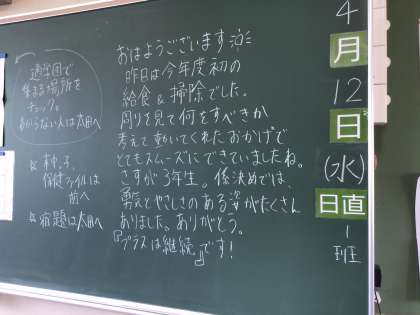 4
月
12
日
(水)
日直
1
班
おはようございます
昨日は今年度初の
給食&掃除でした。
周りを見て何をすべきか
考えて動いてくれたおかげで
とてもスムーズにできていましたね。
さすが3年生。係決めでは、
勇気とやさしさのある姿がたくさん
ありました。ありがとう。
『プラスは継続』です!
通学団で
集まる場所を
チェック。
わからない人は太田へ
保健ファイルは
前へ
宿題は太田へ